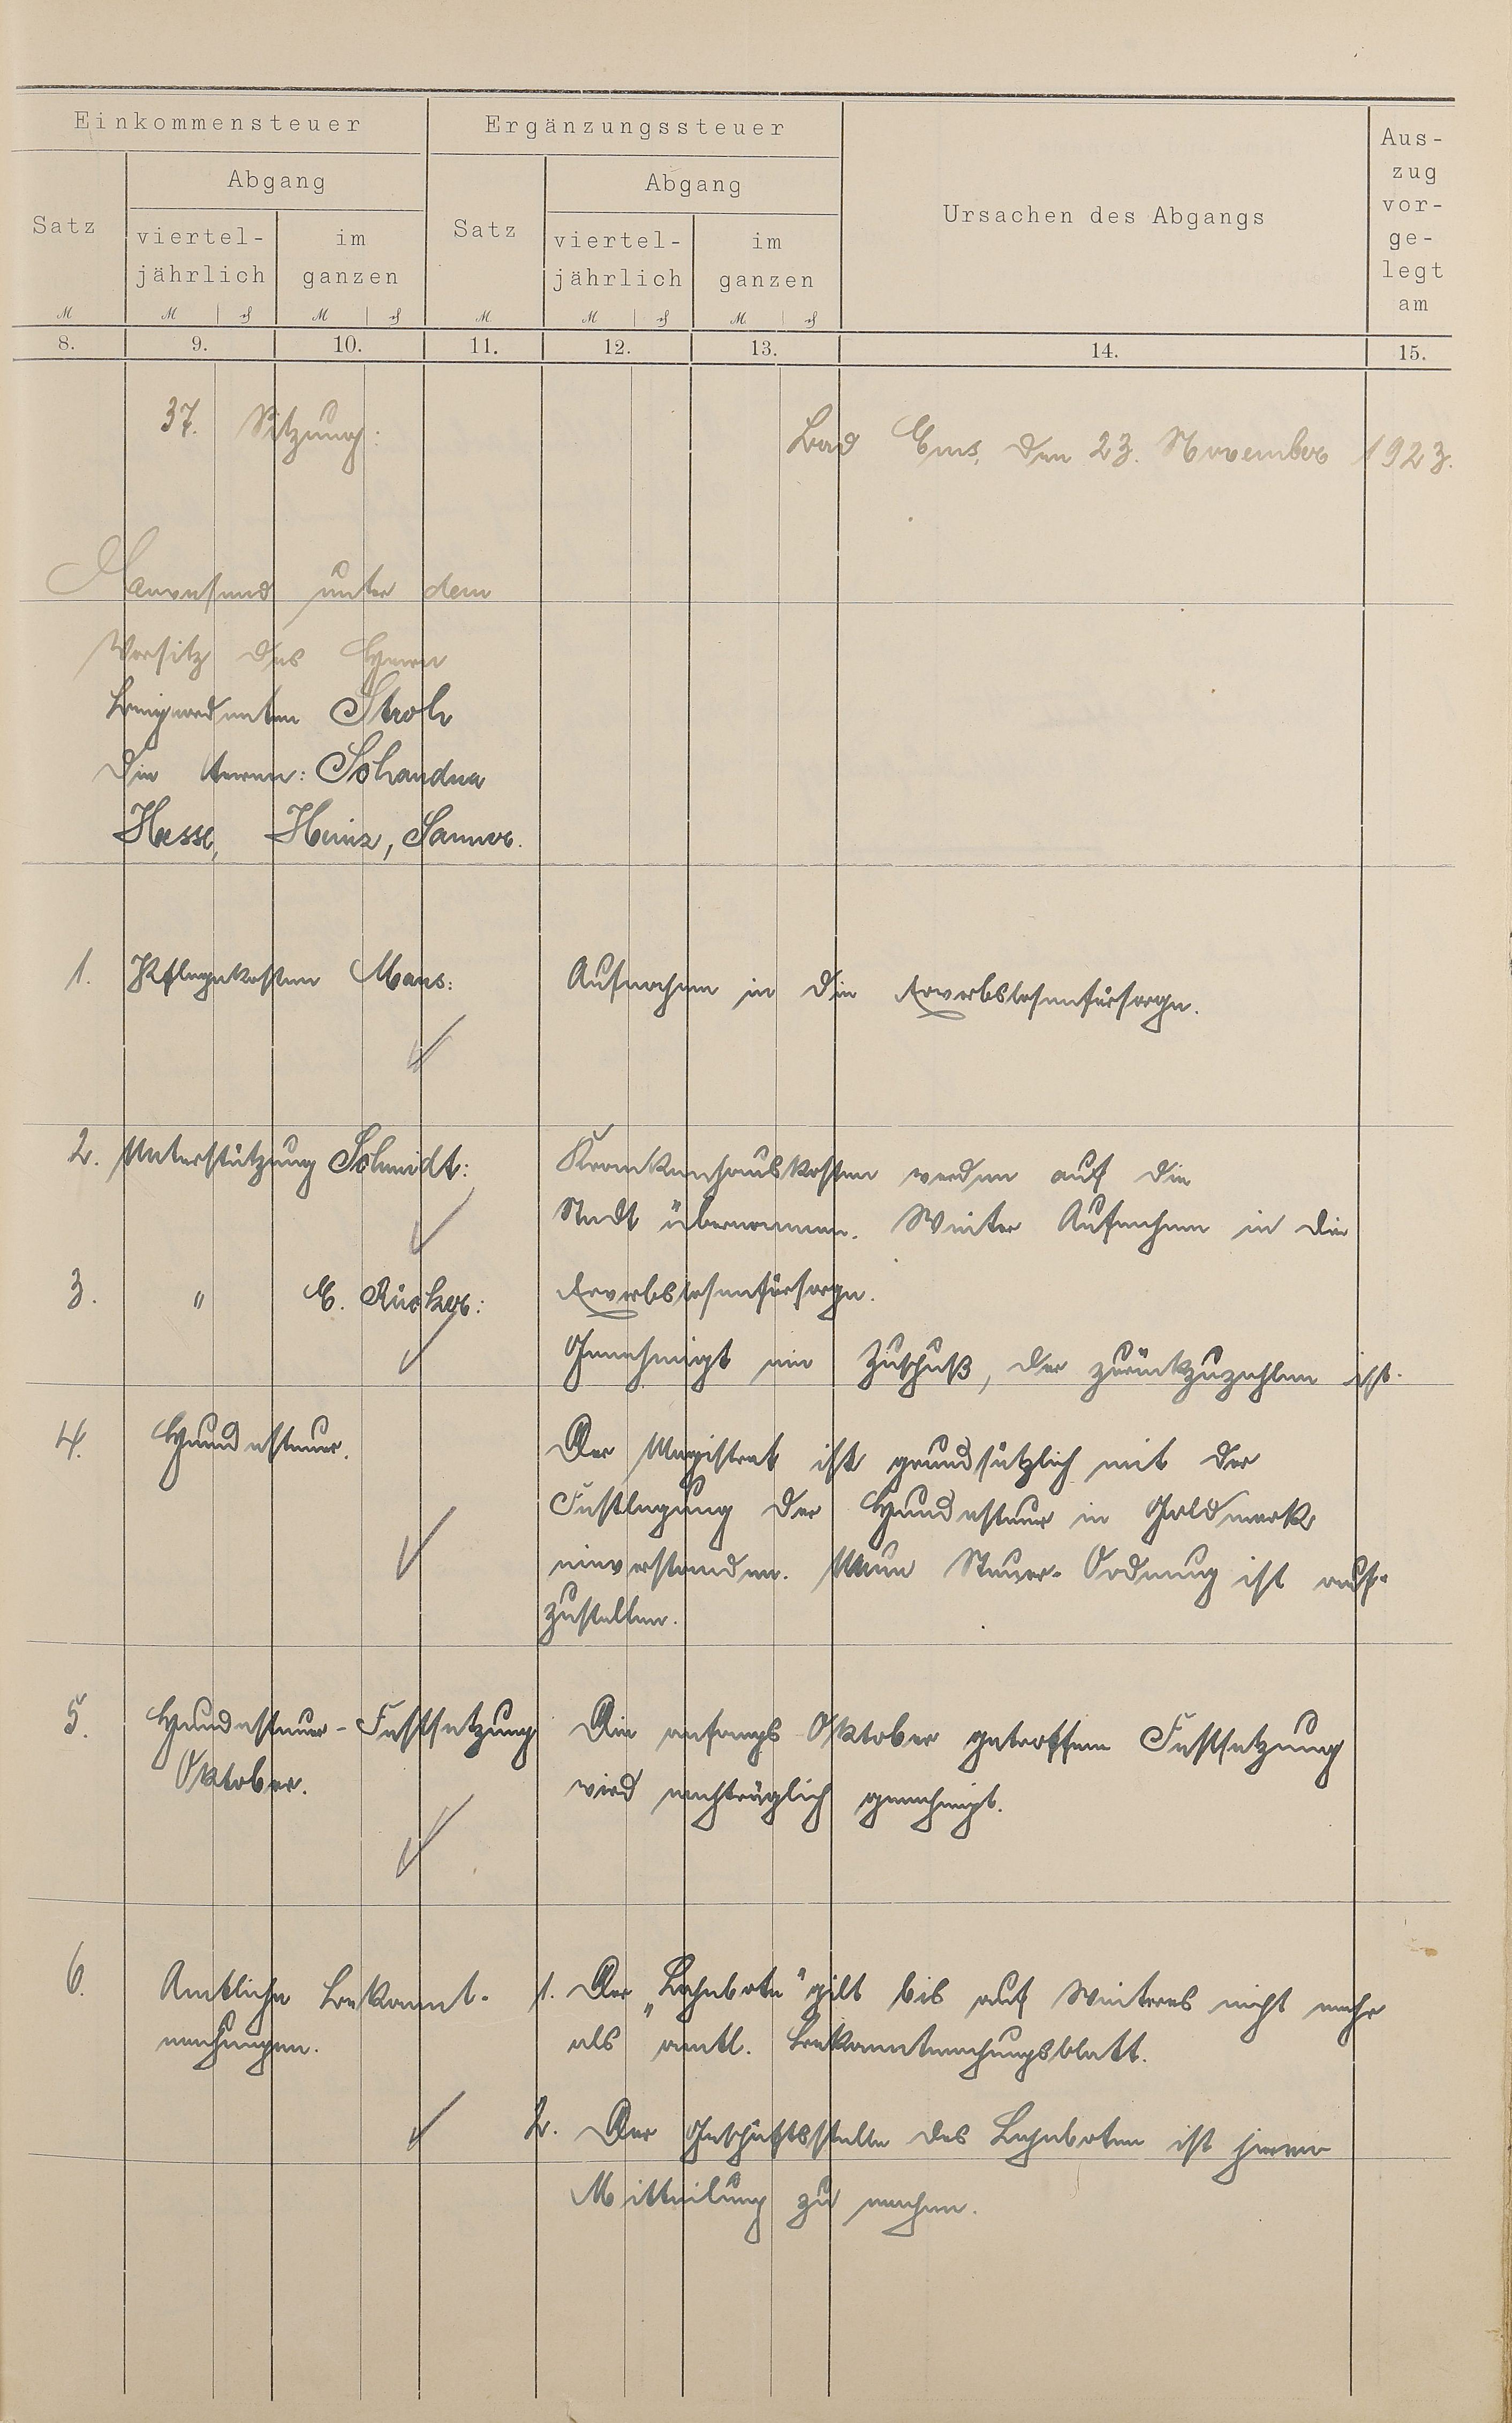 Einkommensteuer
Ergänzungssteuer
Ursachen des Abgangs
Aus-
zug
vor-
ge-
legt
am
Satz
Abgang
viertel-
jährlich
im
ganzen
Satz
Abgang
viertel-
jährlich
im
ganzen
M M ₰ M ₰ M M ₰ M ₰
8. 9. 10. 11. 12. 13. 14. 15.
37. Sitzung:
Bad Ems, den 23. November 1923.
Anwesend unter dem
Vorsitz des Herrn
Beigeordneten Stroh
die Herren: Schandua
Hesse, Heinz, Sanner.
1. Pflegekosten Maus:
Aufnahme in die Erwerbslosenfürsorge.
2. Unterstützung Schmidt:
Krankenhauskosten werden auf die
Stadt übernommen. Weiter Aufnahme in die
Erwerbslosenfürsorge.
3. " E. Rücker:
Genehmigt ein Zuschuß, der zurückzuzahlen ist.
4. Hundesteuer.
Der Magistrat ist grundsätzlich mit der
Festlegung der Hundesteuer in Goldmark
einverstanden. Neue Steuer-Ordnung ist auf-
zustellen.
5. Hundesteuer-Festsetzung
Oktober.
Die anfangs Oktober getroffene Festsetzung
wird nachträglich genehmigt.
6. Amtliche Bekannt-
machungen.
1. Der „Lahnbote" gilt bis auf Weiteres nicht mehr
als amtl. Bekanntmachungsblatt.
2. Der Geschäftsstelle des Lahnboten ist hiervon
Mitteilung zu machen.